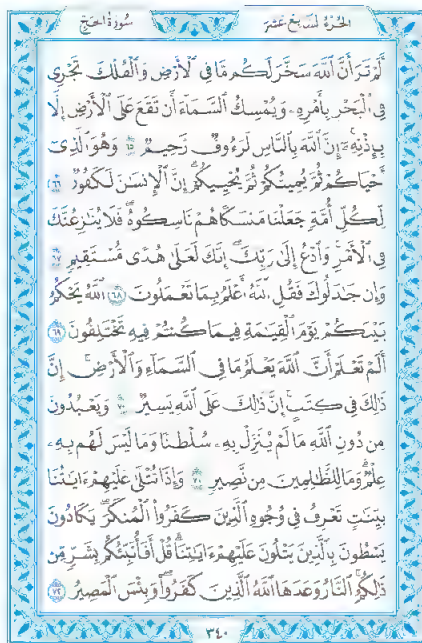 الجزء السابع عشر سورة الحج
ألم تر أن الله سخر لكم ما في الأرض والفلك تجري
في البحر بأمره ويمسك السماء أن تقع على الأرض إلا
بإذنه إن الله بالناس لرءوف رحيم ٦٥ وهو الذي
أحياكم ثم يميتكم ثم يحييكم إن الإنسن لكفور ٦٦
لكل أمة جعلنا منسكا هم ناسكوه فلا ينزعنك
في الأمر وادع إلى ربك إنك لعلى هدى مستقيم ٦٧
وإن جدلوك فقل الله أعلم بما تعملون ٦٨ الله يحكم
بينكم يوم القيمة فيما كنتم فيه تختلفون ٦٩
ألم تعلم أن الله يعلم ما في السماء والأرض إن
ذلك في كتب إن ذلك على الله يسير ٧٠ ويعبدون
من دون الله ما لم ينزل به سلطنا وما ليس لهم به
علم وما للظلمين من نصير ٧١ وإذا تتلى عليهم ءايتنا
بينت تعرف في وجوه الذين كفروا المنكر يكادون
يسطون بالذين يتلون عليهم ءايتنا قل أفأنبئكم بشر من
ذلكم النار وعدها الله الذين كفروا وبئس المصير ٧٢
٣٤٠